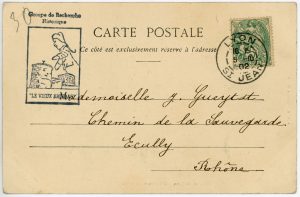 30
Groupe de Recherche
Historique
CARTE POSTALE
Ce côté est exclusivement réservé à l'adresse
LYON
02
ST JEAN
"LE VIEUX
Mademoiselle J. Gueytst
Chemin de la Sauvegarde
Ecully
Rhône